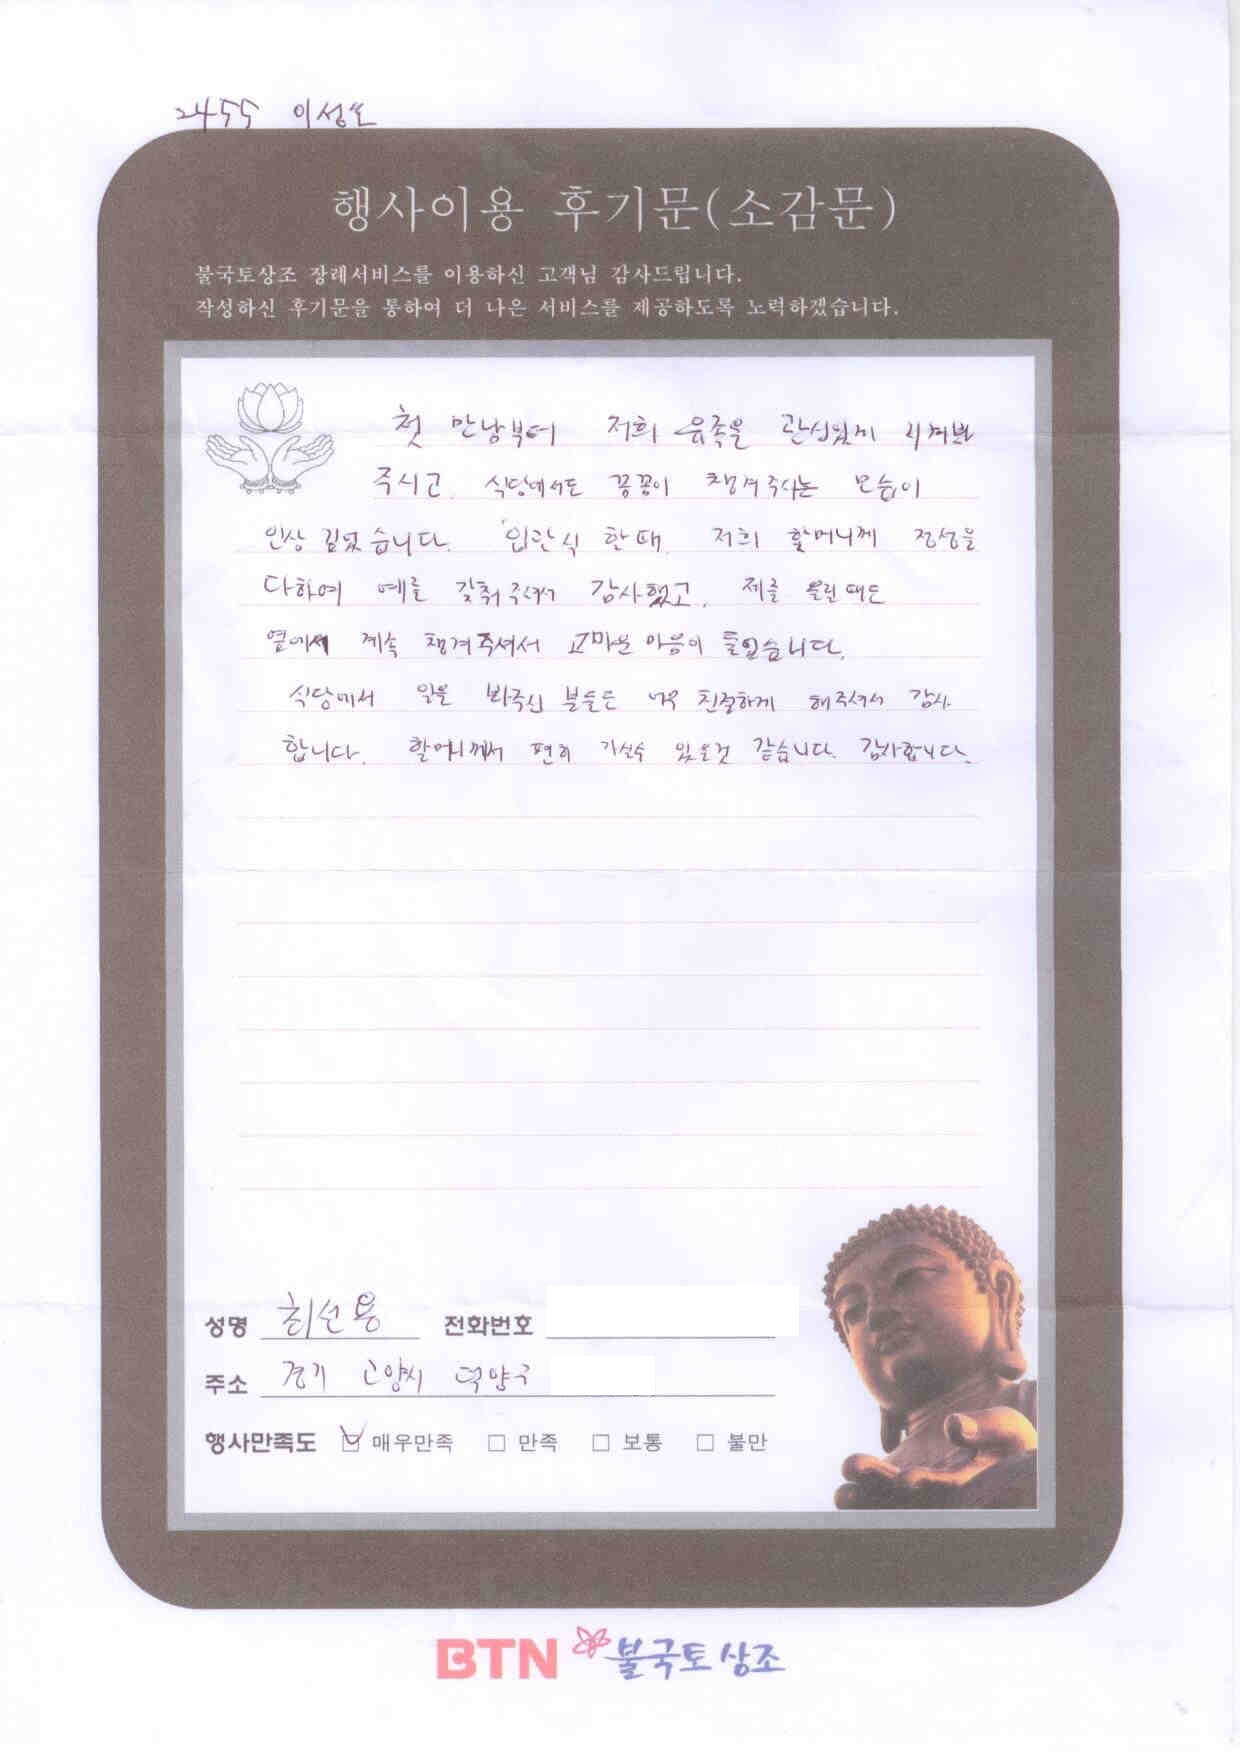 2455 이성호
행사이용 후기문(소감문)
불국토상조 장례서비스를 이용하신 고객님 감사드립니다.
작성하신 후기문을 통하여 더 나은 서비스를 제공하도록 노력하겠습니다.
첫 만남부터 저희 유족을 관심있게 지켜봐
주시고, 식당에서도 꼼꼼이 챙겨주시는 모습이
인상 깊었습니다. 입관식 할때, 저희 할머니께 정성을
다하여 예를 갖춰주셔서 감사했고, 제를 올릴때도
옆에서 계속 챙겨주셔서 고마운 마음이 들었습니다.
식당에서 일을 봐주신 분들도 너무 친절하게 해주셔서 감사
합니다. 할머니께서 편히 가실수 있을것 같습니다. 감사합니다.
성명 최선용 전화번호
주소 경기 고양시 덕양구
행사만족도 매우만족 만족 보통 불만
BTN 불국토상조